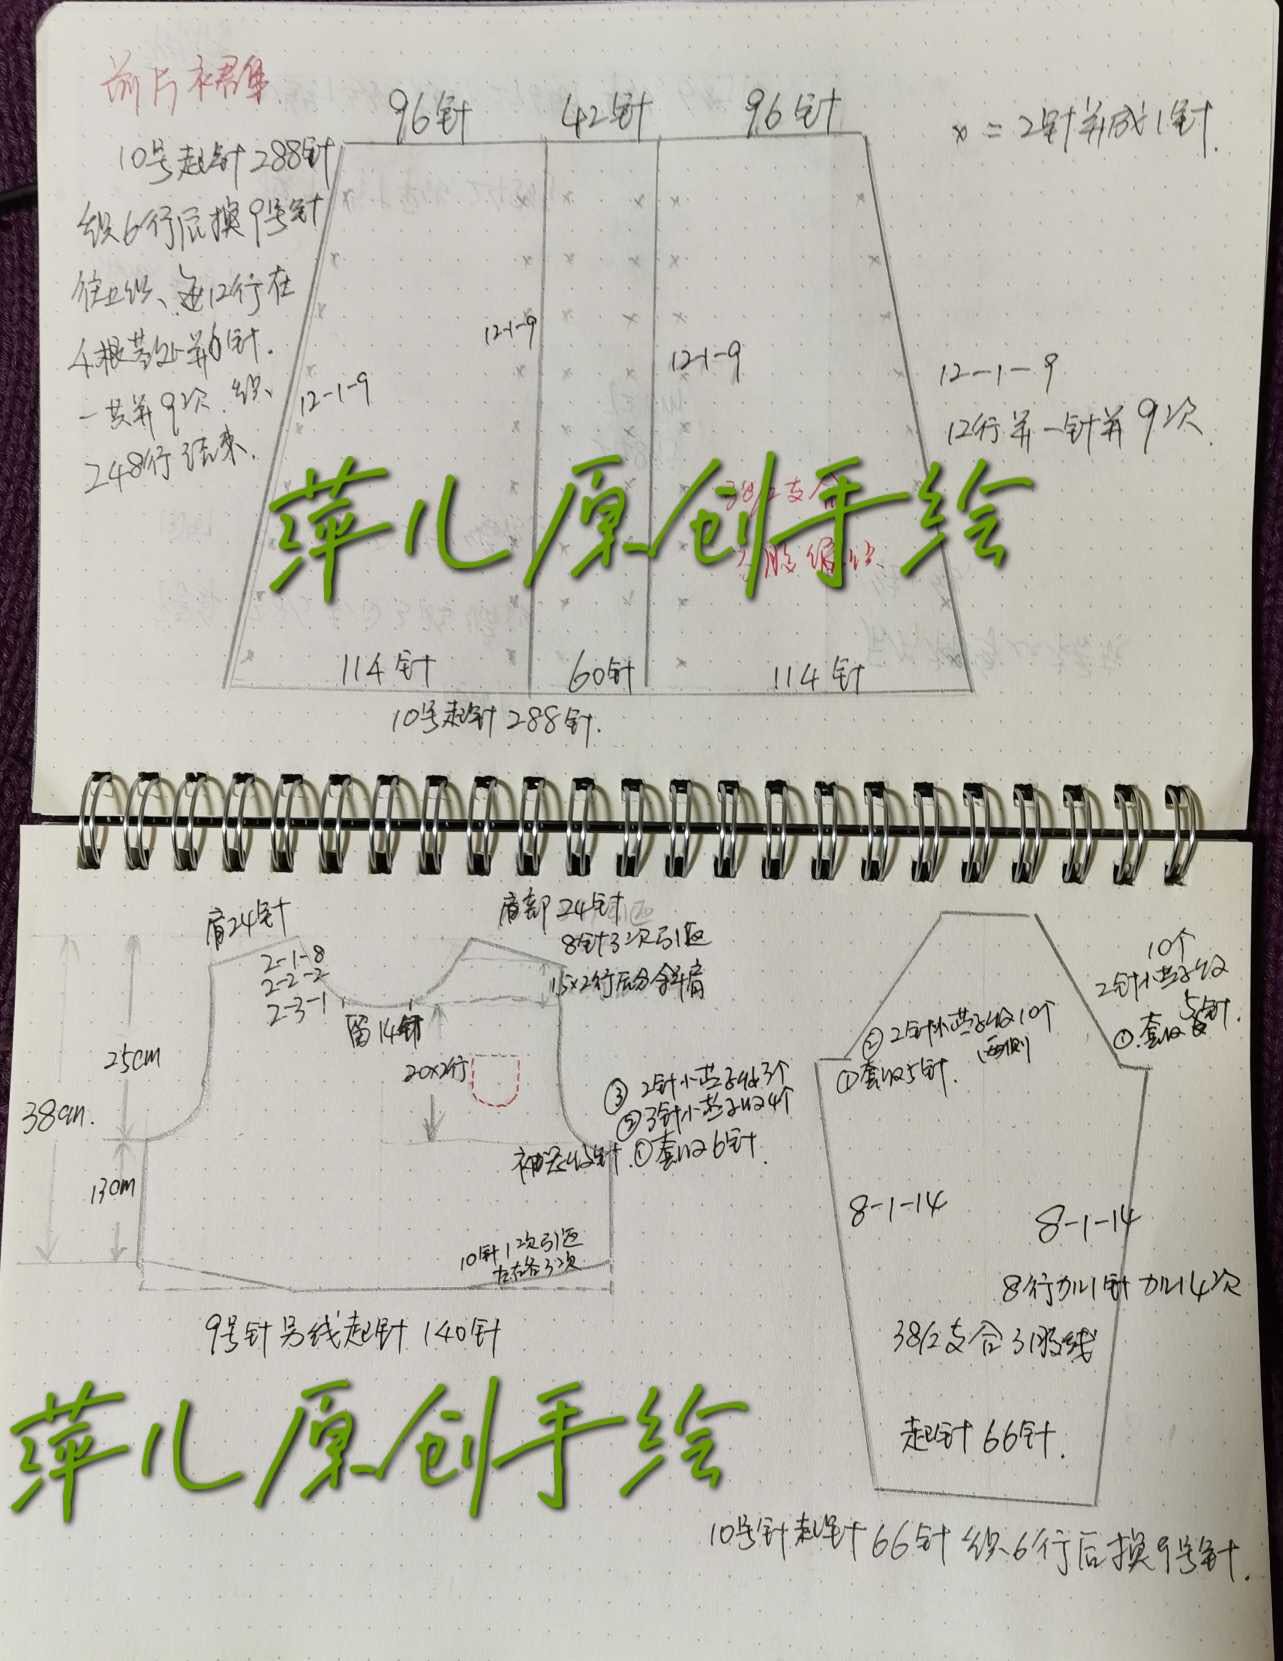 前片裙摆
96针 42针 96针
x = 2针并成1针.
10号起针288针
织6行后换9号针
往上织、每12行在
4根茎处并6针.
一共并9次.织
248行结束.
12-1-9
12-1-9
12-1-9
12-1-9
12行并一针并9次
38/2支合
3股编织
萍儿原创手绘
114针 60针 114针
10号起针288针.
肩24针
2-1-8
2-2-2
2-3-1
留14针
肩部24针
8针3次引返
15x2行后分斜肩
20x2行
25cm
38cm.
13cm
③ 2针小燕子收3个
② 3针小燕子收4个
袖笼收针.①套收6针.
10针1次引返
左右各3次
9号针另线起针140针
10个
2针小燕子收
5针.
①.套收
② 2针小燕子收10个
两侧
①套收5针.
8-1-14
8-1-14
8行加1针加14次
38/2支合3股线
起针66针.
萍儿原创手绘
10号针起针66针织6行后换9号针.